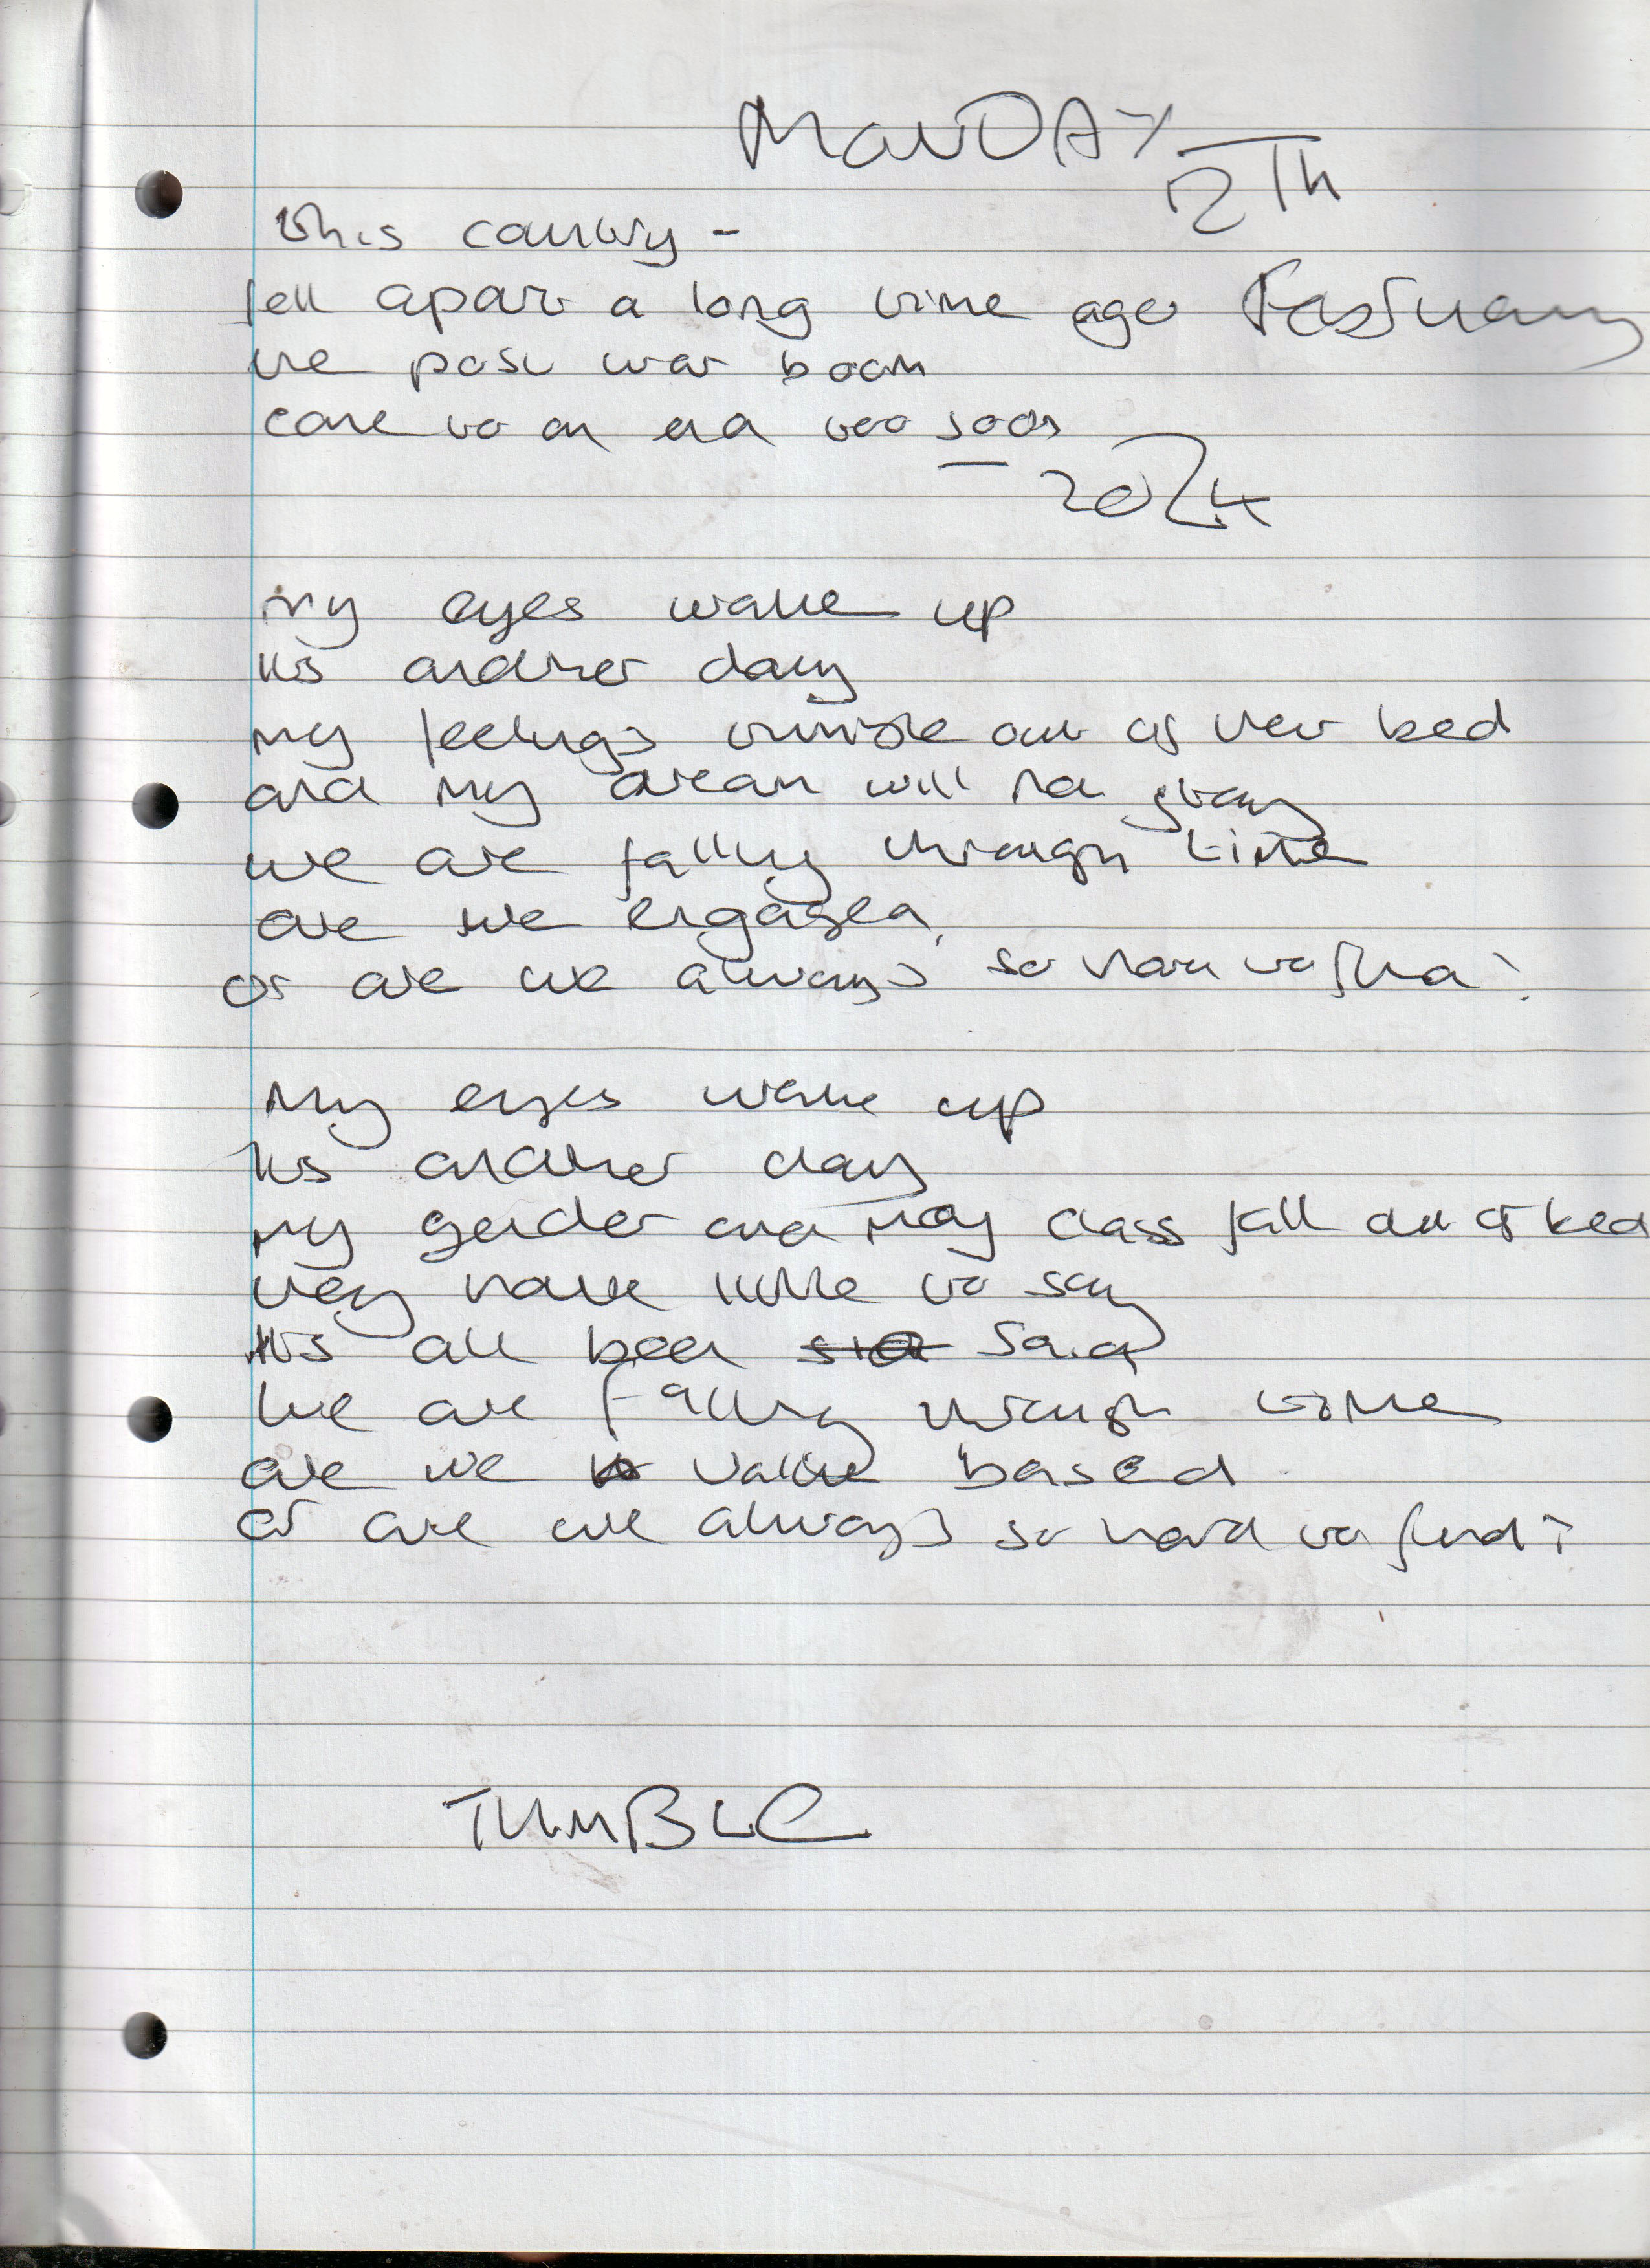 MONDAY
12Th
this country -
fell apart a long time ago
February
the post war boom
came to an end too soon
- 2024
my eyes wake up
its another day
my feelings tumble out of their bed
and my dream will not stay
we are falling through time
are we engaged,
or are we always so hard to find?
My eyes wake up
Its another day
my gender and my class fall out of bed
they have little to say
its all been said
We are falling through time
are we value based
or are we always so hard to find?
TUMBLE